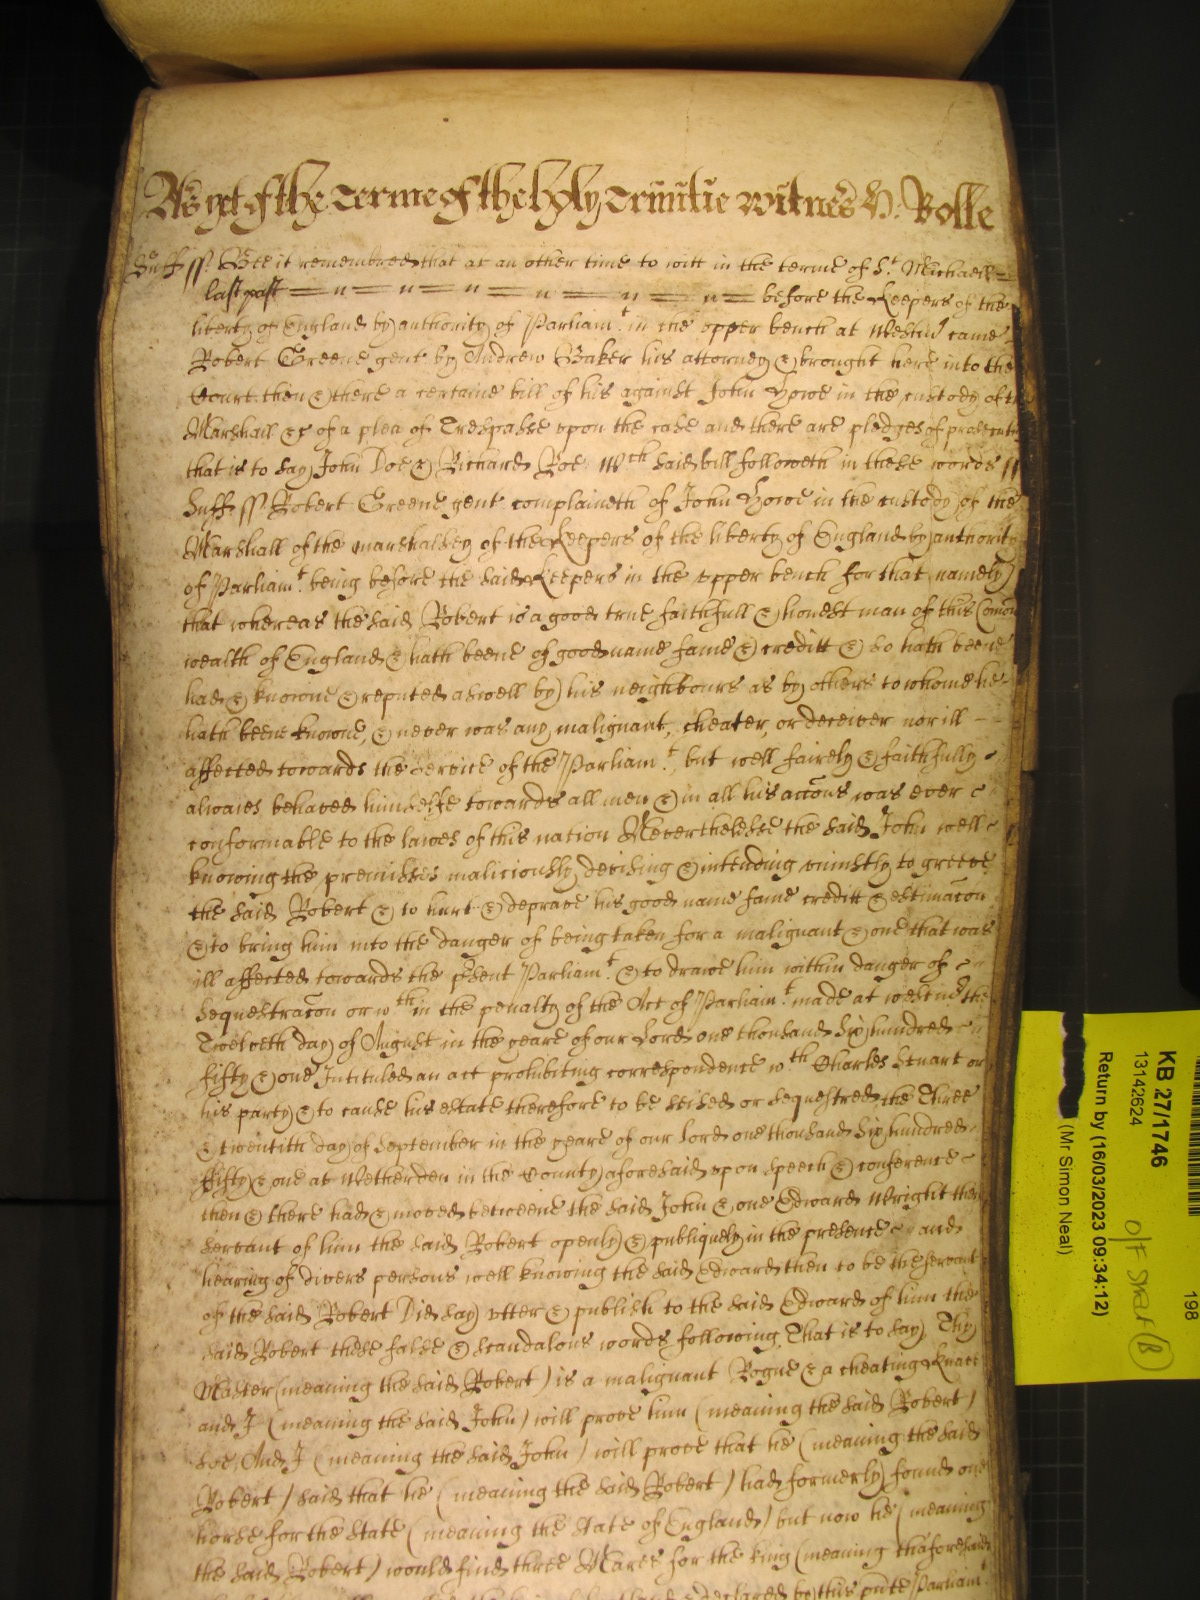 As yet of the Terme of the holy Trinitie Witnes H: Rolle
Suff ss. Bee it remembred that at an other time to witt in the terme of St. Michaell
last past = n = n = n = n = n = n = before the Keepers of the
liberty of England by authority of Parliamt. in the upper bench at Westmr came
Robert Greene gent by Andrew Baker his attorney & brought here into the
Court then & there a certaine bill of his against John Howe in the custody of the
Marshall &c of a plea of Trespasse upon the case and there are pledges of prosecut
that is to say John Doe & Richard Roe Wch said bill followeth in these words ss
Suff. ss Robert Greene gent complaineth of John Howe in the custody of the
Marshall of the marshalsey of the Keepers of the liberty of England by authority
of Parliamt. being before the said Keepers in the upper bench for that namely
that whereas the said Robert is a good true faithfull & honest man of this Comon
wealth of England & hath beene of good name fame & creditt & so hath beene
had & knowne & reputed aswell by his neighbours as by others to whome he
hath beene knowne, & never was any malignant, cheater, or deceiver nor ill - -
affected towards the service of the Parliamt, but well fairely & faithfully
alwaies behaved himselfe towards all men & in all his accons was ever
conformable to the lawes of this nation Neverthelesse the said John well
knowing the premisses maliciously devising & intending uniustly to greeve
the said Robert & to hurt & deprave his good name fame creditt & estimacon
& to bring him into the danger of being taken for a malignant & one that was
ill affected towards the present Parliamt. & to drawe him within danger of
Sequestracon or wthin the penalty of the Act of Parliamt. made at westmr the
Twelveth day of August in the yeare of our Lord one thousand six hundred
fifty & one Intituled an act prohibiting correspondence wth Charles Stuart or
his party & to cause his estate therefore to be seised or sequestred the Three
& twentith day of September in the yeare of our lord one thousand six hundred
fifty & one at Wetherden in the County aforesaid upon speech & conference
then & there had & moved betweene the said John & one Edward Wright then
servant of him the said Robert openly & publiquely in the presence and
hearing of divers persons well knowing the said Edward then to be the servant
of the said Robert Did say utter & publish to the said Edward of him the
said Robert these false & scandalous words following That is to say, Thy
Master (meaning the said Robert) is a malignant Rogue & a cheating Knave
and I (meaning the said John) will prove him (meaning the said Robert)
soe, And I (meaning the said John) will prove that he (meaning the said
Robert) said that he (meaning the said Robert) had formerly found one
horse for the State (meaning the state of England) but now he (meaning
the said Robert) would find three Mares for the king (meaning thaforesaid
declared by this pnte Parliamt.
KB 27/1746
13142624
Return by (16/03/2023 09:34:12)
(Mr Simon Neal)
198
O/F Straf (B)